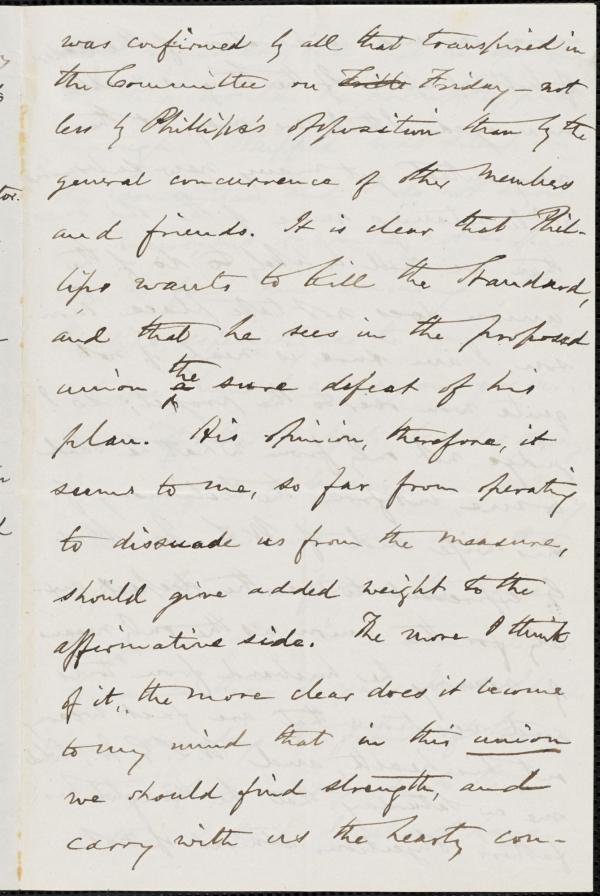 was confirmed by all that transpired in
the Committee on Friday – not
less by Phillips's opposition than by the
general concurrence of other Members
and friends. It is clear that Phil-
lips wants to kill the Standard,
and that he sees in the proposed
union the sure defeat of his
plan. His opinion, therefore, it
seems to me, so far from operating
to dissuade us from the measure,
should give added weight to the
affirmative side. The more I think
of it, the more clear does it become
to my mind that in this union
we should find strength, and
carry with us the hearty con-